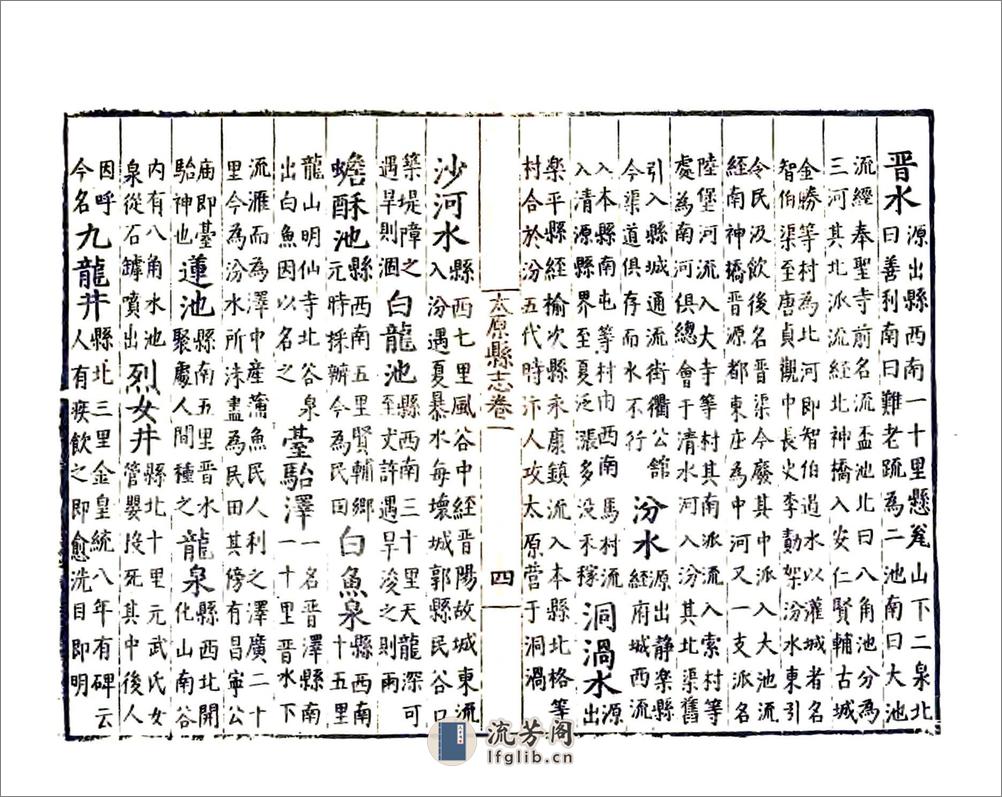 晉水
源出縣西南一十里懸瓮山下二泉北
曰善利南曰難老䟽為二池南曰大池
流經奉聖寺前名流盃池北曰八角池分為
三河其北派流經北神橋入安仁賢輔古城
金勝等村為北河即智伯遏水以灌城者名
智伯渠至唐貞觀中長史李勣架汾水東引
令民汲飲後名晉渠今廢其中派入大池流
經南神橋晉源都東庄為中河又一支派名
陸堡河流入大寺等村其南派流入索村等
處為南河俱總會于清水河入汾其北渠舊
引入縣城通流街衢公館
今渠道俱存而水不行
汾水
源出静樂縣
經府城西流
入本縣南屯等村由西南馬村流
入清源縣界至夏泛漲多没禾稼
洞渦水
源
出
樂平縣經榆次縣永康鎮流入本縣北格等
村合於汾五代時汴人攻太原营于洞渦
太原縣志卷一
四
沙河水
縣西七里風谷中經晉陽故城東流
入汾遇夏暴水每壞城郭縣民谷口
築堤障之
遇旱則涸
白龍池
縣西南三十里天龍深可
至丈許遇旱浚之則雨
蟾酥池
縣西南五里賢輔鄉
元時採辦今為民田
白魚泉
縣西南
十五里
龍山明仙寺北谷泉
出白魚因以名之
臺駘澤
一名晉澤縣南
一十里晉水下
流滙而為澤中產蒲魚民人利之澤廣二十
里今為汾水所洙盡為民田其傍有昌寧公
廟即臺
駘神也
蓮池
縣南五里晉水
聚處人間種之
龍泉
縣西北開
化山南谷
内有八角水池
泉從石罅噴出
烈女井
縣北十里元武氏女
管嬰投死其中後人
因呼
今名
九龍井
縣北三里金皇統八年有碑云
人有疾飲之即愈洗目即明
流芳阁
lfglib.cn